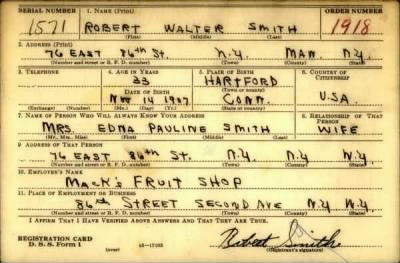 SERIAL NUMBER 1. NAME (Print) ORDER NUMBER
1571 ROBERT WALTER SMITH 1918
(First) (Middle) (Last)
2. ADDRESS (Print)
76 EAST 86th ST. N.Y. MAN. N.Y.
(Number and street or R. F. D. number) (Town) (County) (State)
3. TELEPHONE 4. AGE IN YEARS 5. PLACE OF BIRTH 6. COUNTRY OF CITIZENSHIP
33 HARTFORD
DATE OF BIRTH (Town or county)
Nov 14 1907 CONN. U.S.A.
(Exchange) (Number) (Mo.) (Day) (Yr.) (State or country)
7. NAME OF PERSON WHO WILL ALWAYS KNOW YOUR ADDRESS 8. RELATIONSHIP OF THAT PERSON
MRS. EDNA PAULINE SMITH WIFE
(Mr., Mrs., Miss) (First) (Middle) (Last)
9. ADDRESS OF THAT PERSON
76 EAST 86th ST. N.Y. N.Y. N.Y.
(Number and street or R. F. D. number) (Town) (County) (State)
10. EMPLOYER'S NAME
FRUIT SHOP
11. PLACE OF EMPLOYMENT OR BUSINESS
86th STREET SECOND AVE N.Y. N.Y.
(Number and street or R. F. D. number) (Town) (County) (State)
I AFFIRM THAT I HAVE VERIFIED ABOVE ANSWERS AND THAT THEY ARE TRUE.
REGISTRATION CARD
D. S. S. Form 1 (over) 16-17105 Robert Smith
(Registrant's signature)